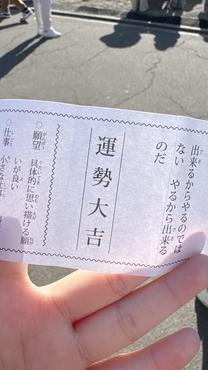 出来るからやるのでは
ない やるから出来る
のだ
運勢大吉
○願望 具体的に思い描ける願
いが良い
○仕事 小さな仕事